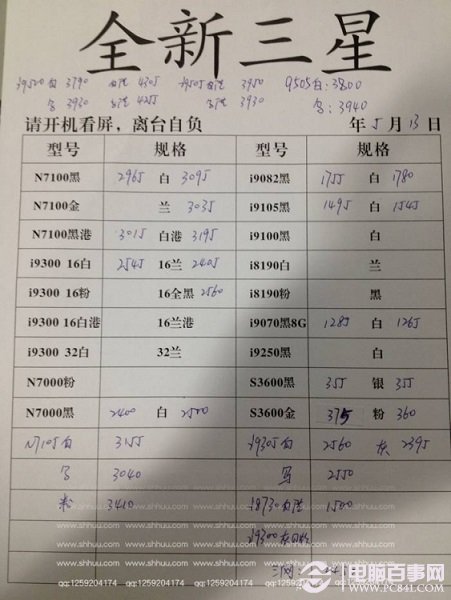 全新三星
39500白 3790 白港 4305 19505白港 3950 9505白:3800
3930 4255 3930 3940
请开机看屏，离台自负 年 5 月 13 日
型号 规格 型号 规格
N7100黑 2965 白 3095 i9082黑 1755 白 1780
N7100金 兰 3035 i9105黑 1495 白 1545
N7100黑港 3015 白港 3195 i9100黑 白
i9300 16白 2545 16兰 2405 i8190白 兰
i9300 16粉 16全黑 2560 i8190粉 黑
i9300 16白港 16兰港 i9070黑8G 1285 白 1265
i9300 32白 32兰 i9250黑 白
N7000粉 S3600黑 355 银 355
N7000黑 2400 白 2500 S3600金 375 粉 360
N7105白 3155 i9305白 2560 灰 2395
3040 2550
3410 i8730白港 1500
www.shhuu.com www.shhuu.com www.shhuu.com www.shhuu.com
i9300
www.shhuu.com www.shhuu.com www.shhuu.com www.shhuu.com
www.shhuu.com www.shhuu.com www.shhuu.com
qq1259204174 qq1259204174 qq1259204174 qq1259204174 qq1259204174
电脑百事网
WWW.PC841.COM